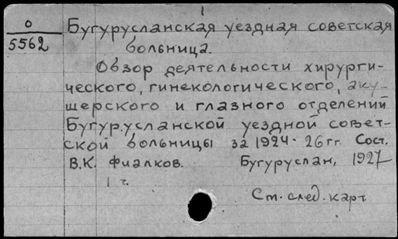 1
О
5562
Бугурусланская уездная советская
больница.
Обзор деятельности хирурги-
ческого, гинекологического, аку-
шерского и глазного отделений
Бугурусланской уездной совет-
ской больницы за 1924-26 гг Сост.
В.К. Фиалков. Бугуруслан, 1927
1 г.
См. след. карт